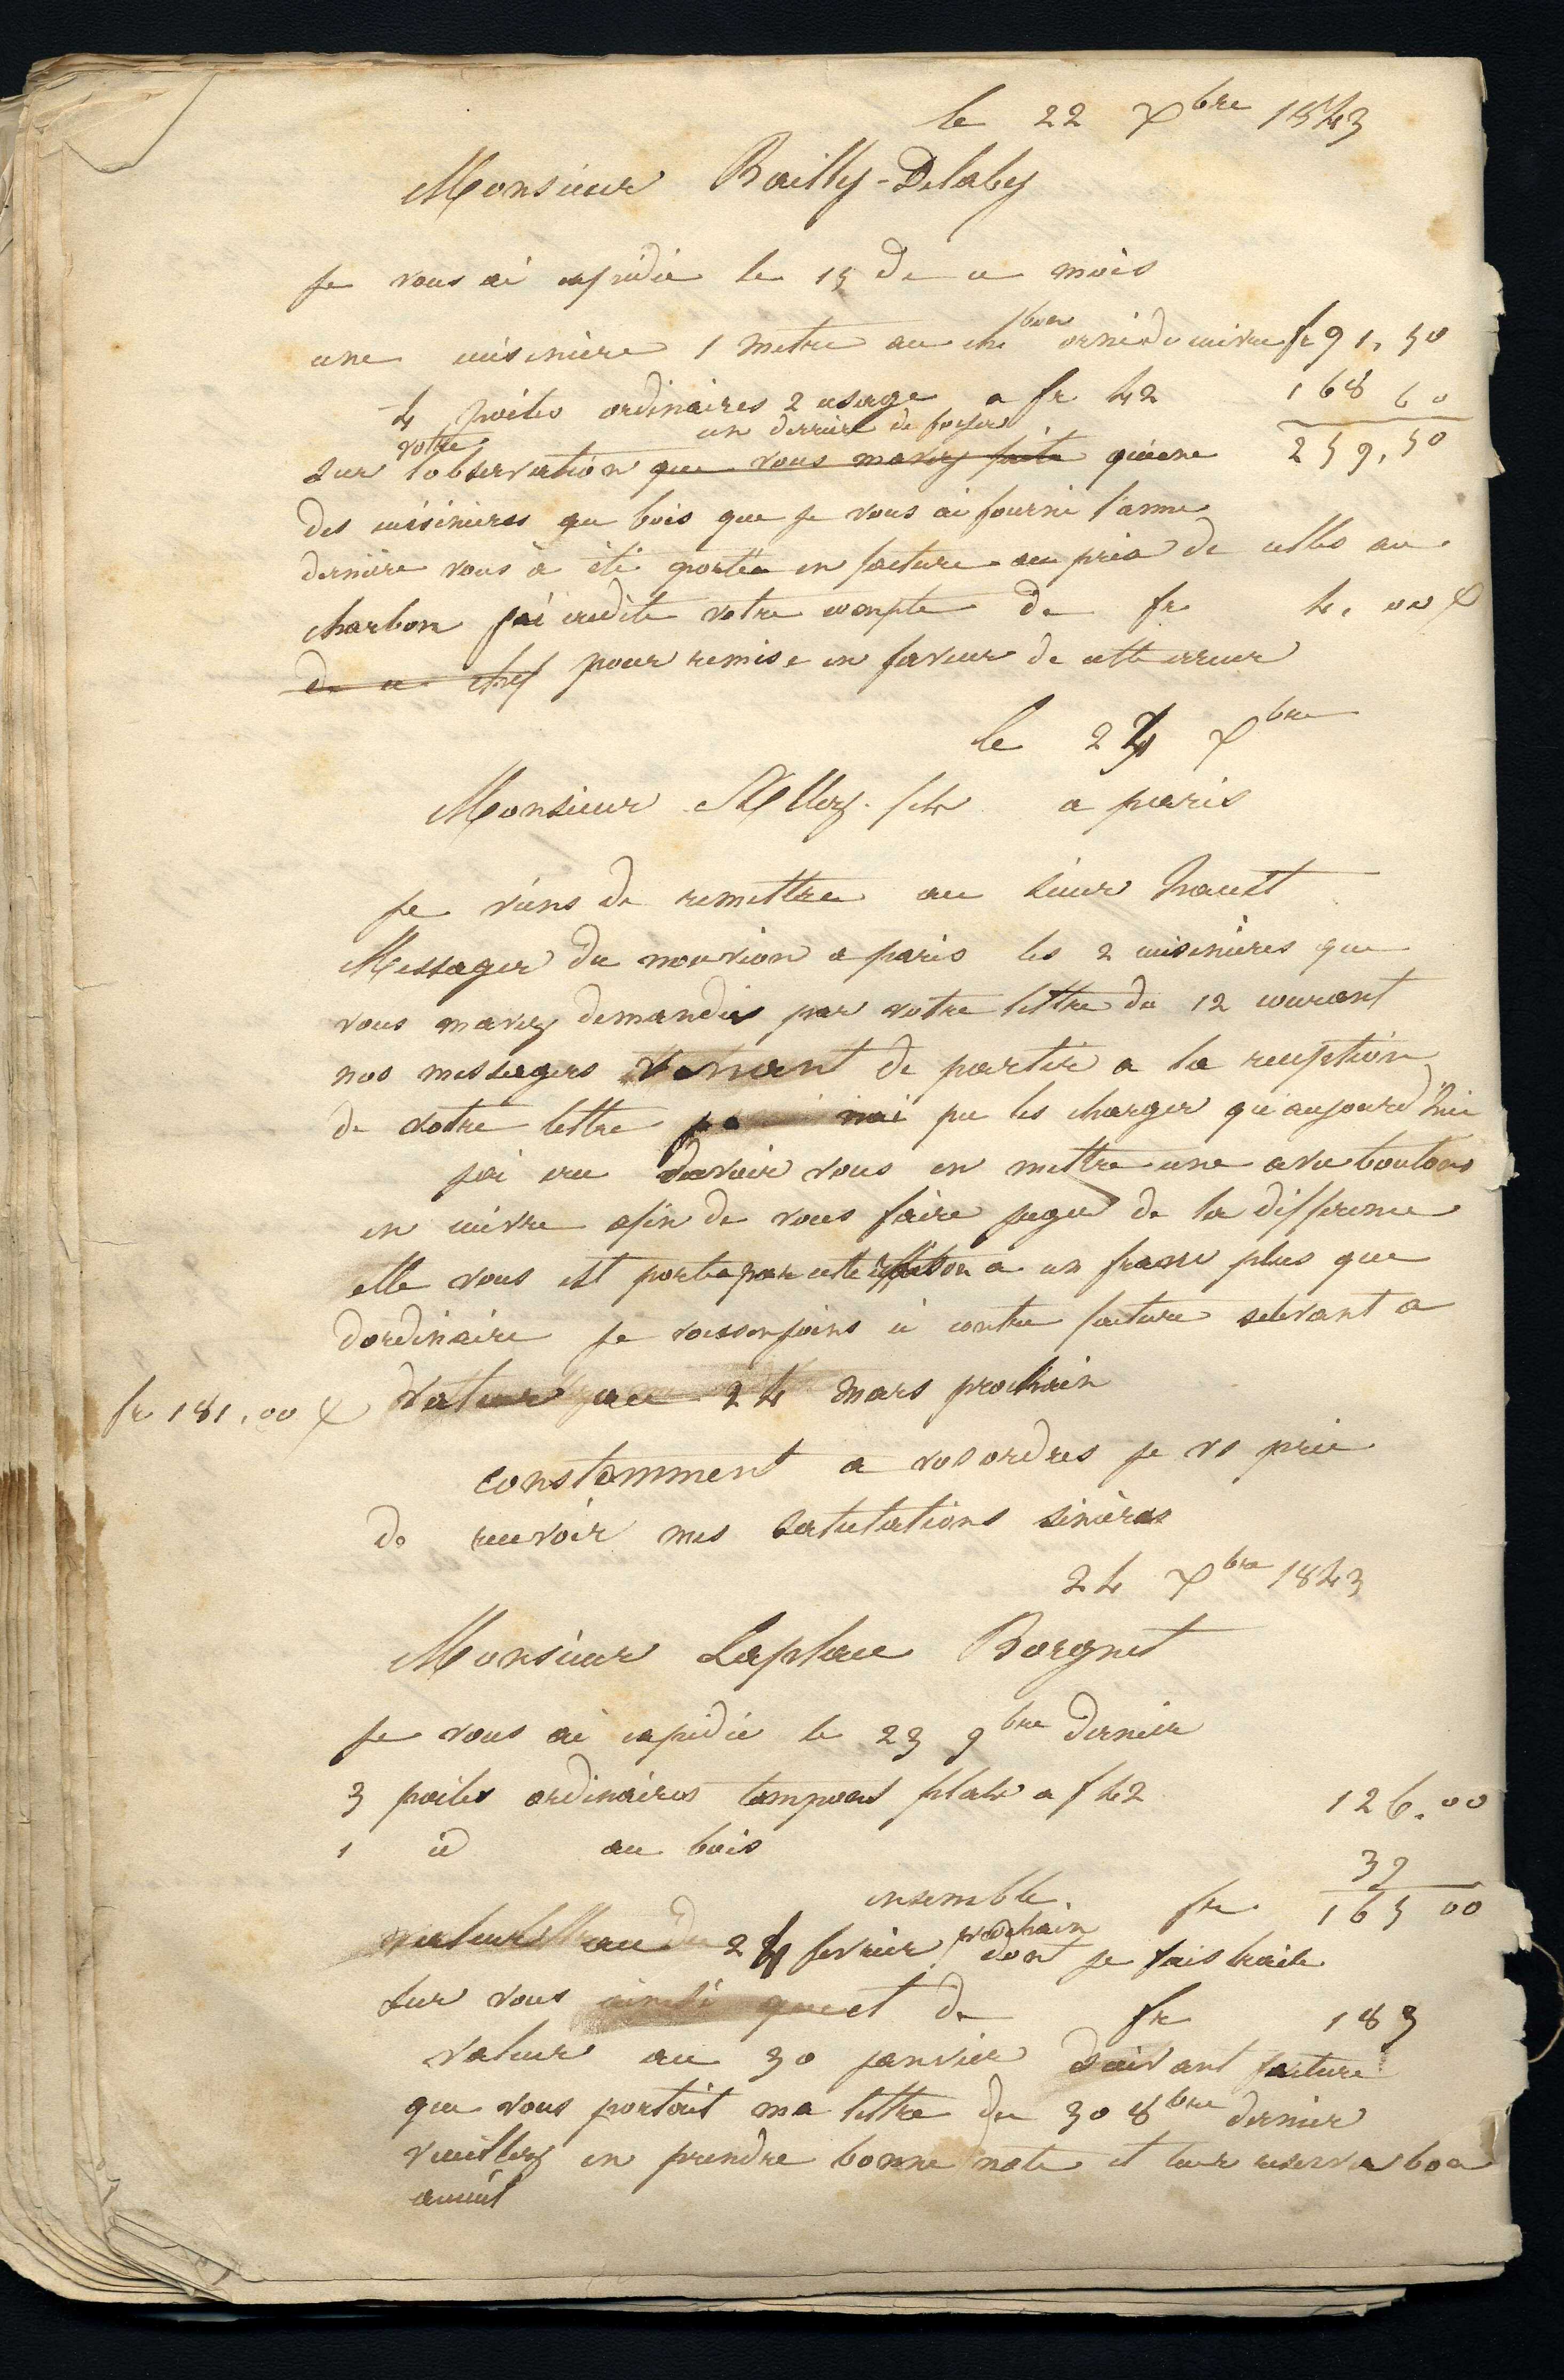 le 22 Xbre 1843
Monsieur Bailly-Delaby
je vous ai expidié le 15 de ce mois
une cuisinière 1 metre au chbon orné de cuivre fr 91, 50
4 poiles ordinaires 2 usage a fr 42 168 00
votre un derrière de foyer
Sur l'observation que vous mavez faite qu'une 259, 50
des cuisinieres au bois que je vous ai fourni l'anne
dernière vous à été portéé en facture au prix de celles au
charbon j'ai credite votre compte de fr 4. 00
de ce chef pour remise en faveur de cette erreur
le 24 Xbre
Monsieur a paris
je viens de remettre au sieur hauet
Messager du nouvion a paris les 2 cuisinières que
vous mavez demandés par votre lettre du 12 courant
nos messagers venant de partir a la reception
de votre lettre je nai pu les charger qu'aujourd'hui
jai cru devoir vous en mettre une avec boutons
en cuivre afin de vous faire juger de la difference
elle vous est porte par cette a un franc plus que
dordinaire je vous joins ci contre facture selevant a
fr 181,00 valeur au 24 mars prochain
constamment a vos ordres je vs prie
de recevoir mes salutations sincères
24 Xbre 1843
Monsieur Laplace Borgnet
je vous ai expidié le 23 9bre dernier
3 poiles ordinaires tampons plats a f 42 126.00
1 id au bois 39
ensemble fr 165 00
prochain
valeur au 24 fevrier dont je fais traite
sur vous ainsi que et de fr 183
valeur au 30 janvier suivant facture
que vous portait ma lettre du 30 8bre dernier
veuillez en prendre bonne note et leur reserver bon
acceuil